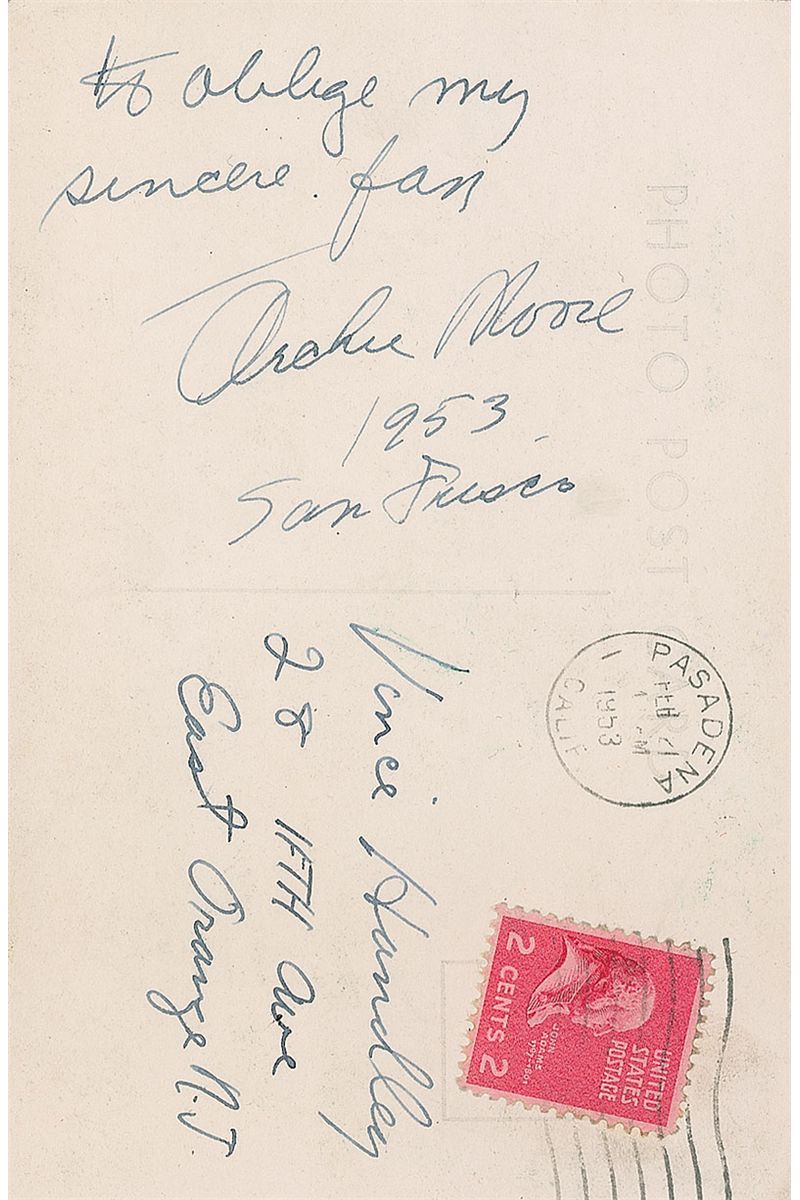 to oblige my
sincere fan
Archie Moore
1953
San Frisco
PHOTO POST CARD
Vince Handley
28 Ave
East Orange N.J
PASADENA
FEB
1953
CALIF
2 CENTS 2
JOHN ADAMS
1797-1801
UNITED
STATES
POSTAGE